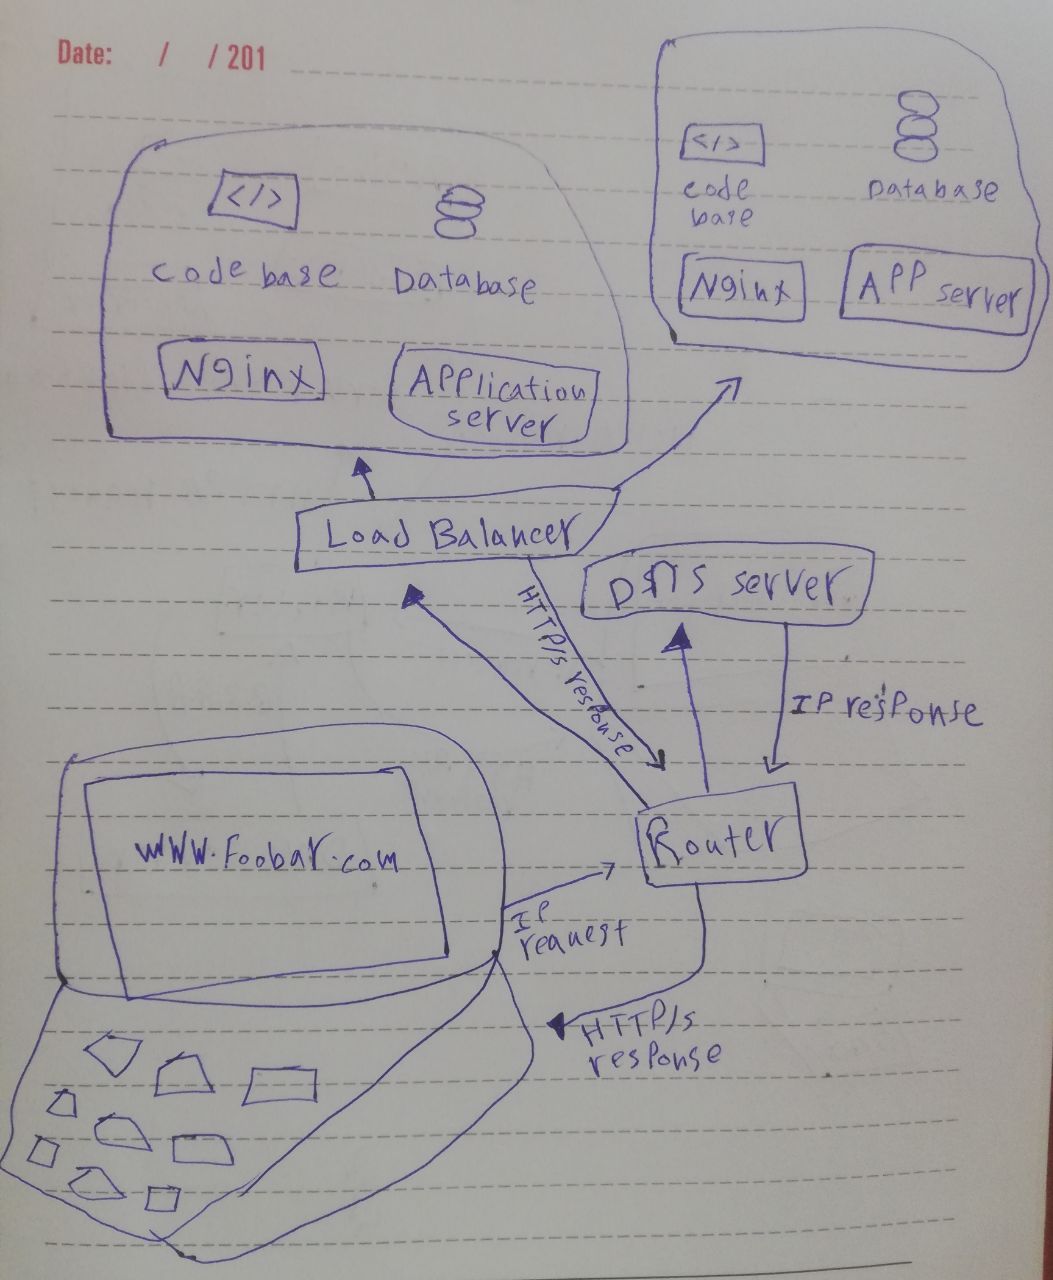 Date: / / 201
</>
code
base
Database
Nginx
APP server
</>
Code base
Database
Nginx
APPlication
server
Load Balancer
DNS server
HTTP/s response
IP response
www.foobar.com
Router
IP
request
HTTP/s
response